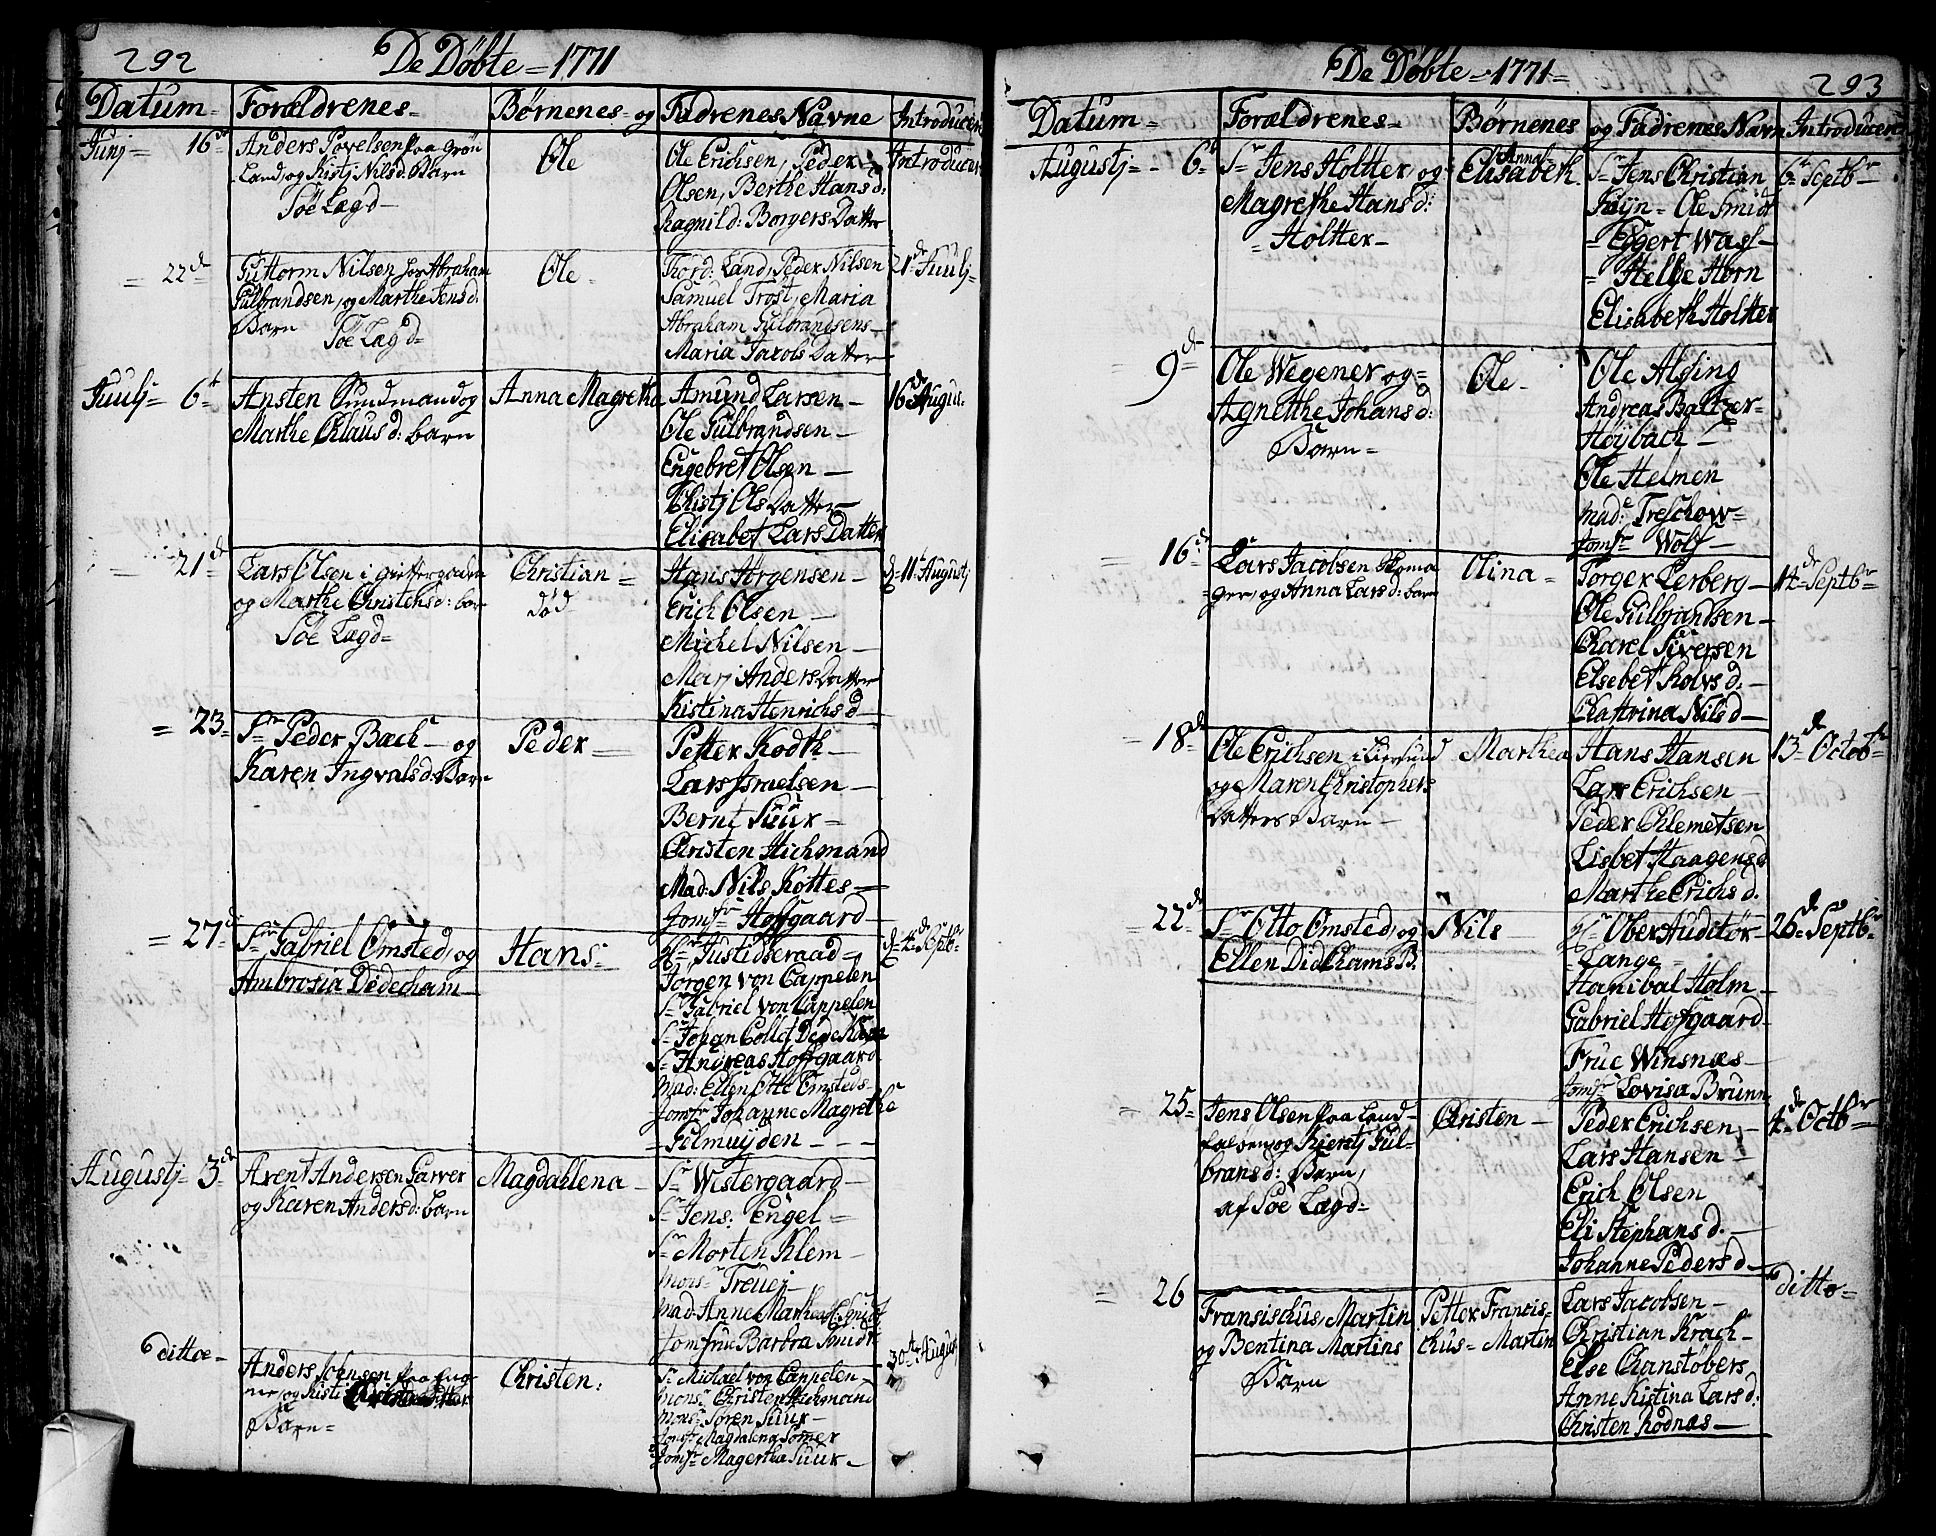 292
De Døbte = 1771
Datum = Forældrenes = Børnenes = og Fadrenes Navne Introducere
Junj = 16de Anders Povelsen paa Grøn
Land, og Kistj Nilsd: Barn
Söe Lægd =
Ole
Ole Erichsen, Peder
Olsen, Berthe Hansd:
Ragnild: Borgers Datter
Introducer
= 22d
Guttorm Nilsen hos Abraham
Gulbrandsen, og Marthe Jensd:
Barn Söe Lægd =
Ole =
Thord: Land, Peder Nilsen
Samuel Trost, Maria
Abraham Gulbrandsens =
Maria Jacobs Datter
21de Juulj =
Juulj = 6t
Ansten Sundmand og
Marthe Clausd: barn
Anna Magretha
Amund Larsen =
Ole Gulbrandsen =
Engebret Olsen =
Chistj Ols Datter =
Elisabet Lars Datter
16de Augus:
= 21d
Lars Olsen i
og Marthe Christensd: bar
Söe Lægd =
Christian =
död
Hans Jørgensen =
Erich Olsen =
Michel Nilsen =
Marj Anders Datter
Kistina Henrichsd =
d: 11t Augustj
= 23 =
Sr Peder Bæch = og
Karen Ingvalsd: Barn
Peder =
Petter Kodth =
Lars Israelsen =
Bernt Suur =
Christen Hichmand
Mad: Nils Kottes =
Jomfr Hoffgaard =
= 27d
Sr Gabriel Omsted, og
Ambrosia Didecham
Hans =
Hr Justidseraad =
Jörgen von Cappelen
Sr Gabriel von Cappelen
Sr Johan Collet
Sr Andreas Hoffgaard
Mad: Ellen Otte Omsteds =
Jomfr Johanne Magrethe
= Gelmuyden - - -
d: 4de Septbr
Augustj = 3de
Arent Andersen Garver
og Karen Andersd: barn
Magdahlena =
Sr Westergaard =
Sr Jens: Engel =
Sr Morten Klem =
Monsr Treuej =
Mad: Anne Marthea Smidt
Jomfrue Barbra Smidt
ditto =
Anders Joensen paa Eng-
ner, og Kisti
Barn =
Christen:
Sr Michael von Cappelen =
Monsr Christen Hichmand
Monsr Sören Suur =
Jomfr Magdalena Sömer
Jomfr Magertha Suur =
30te August
De Döbte = 1771 =
293
Datum = Forældrenes = Börnenes og Fadrenes Navn Introducere
Augustj = 6t
Sr Jens Holtter, og
Magrethe Hansd:
= Holtter =
Anna
Elisabeth.
Sr Jens Christian
= Ole Smidt
= Eggert Wass =
= Helge Horn
Elisabeth Holtter
6te Septbr
= 9de
Ole Wegener og =
Agnethe Johansd:
Barn =
Ole =
Ole Alsing
Andreas Baltzer =
Höybach =
Ole Helmen
Mad: Treschow =
Jomfr Wolf =
= 16de
Lars Jacobsen Skoma
ger, og Anna Larsd: barn
Olina =
Torger Lerberg =
Ole Gulbrandsen =
Charel Siversen
Elsebet Rolvsd: =
Chattrina Nilsd =
14de Septbr
= 18de
Ole Erichsen i
og Maren Christophers
Datters Barn =
Marthea
Hans Hansen
Lars Erichsen =
Peder Chlemetsen
Lisbet Haagensd
Marthe Erichsd.
13de Octobr
= 22de
Sr Otto Omsted, og
Ellen Didchams B.
Nils =
Hr Ober Auditör =
= Lange =
Hanibal Holm =
Gabriel Hofgaard =
Frue Winsnæs =
Jomfr Lovisa Brunn
26de Septbr
= 25 =
Jens Olsen paa Land =
falsen og Kierstj Gul-
bransd: Barn,
af Söe Lægd =
Christen =
Peder Erichsen =
Lars Hansen =
Erich Olsen
Eli Stephansd. =
Johanne Pedersd =
4de Octbr
= 26
Fransischus, Martin
og Bentina Martins
Barn
Petter Francis-
chus = Martin
Lars Jacobsen =
Christian Krach =
Else Chanstöbers
Anne Kistina Larsd:
Christen Rodnæs =
ditto =